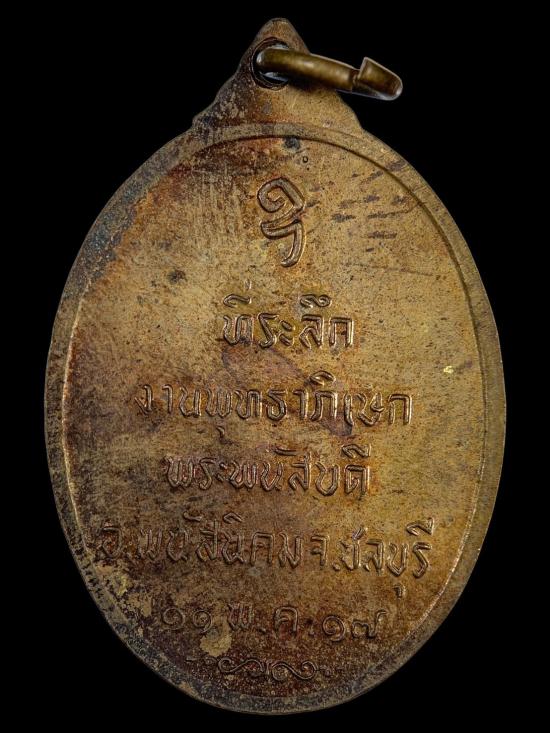 ที่ระลึก
งานพุทธาภิเษก
พระพนัสบดี
อ.พนัสนิคม จ.ชลบุรี
๑๑ พ.ค. ๑๗